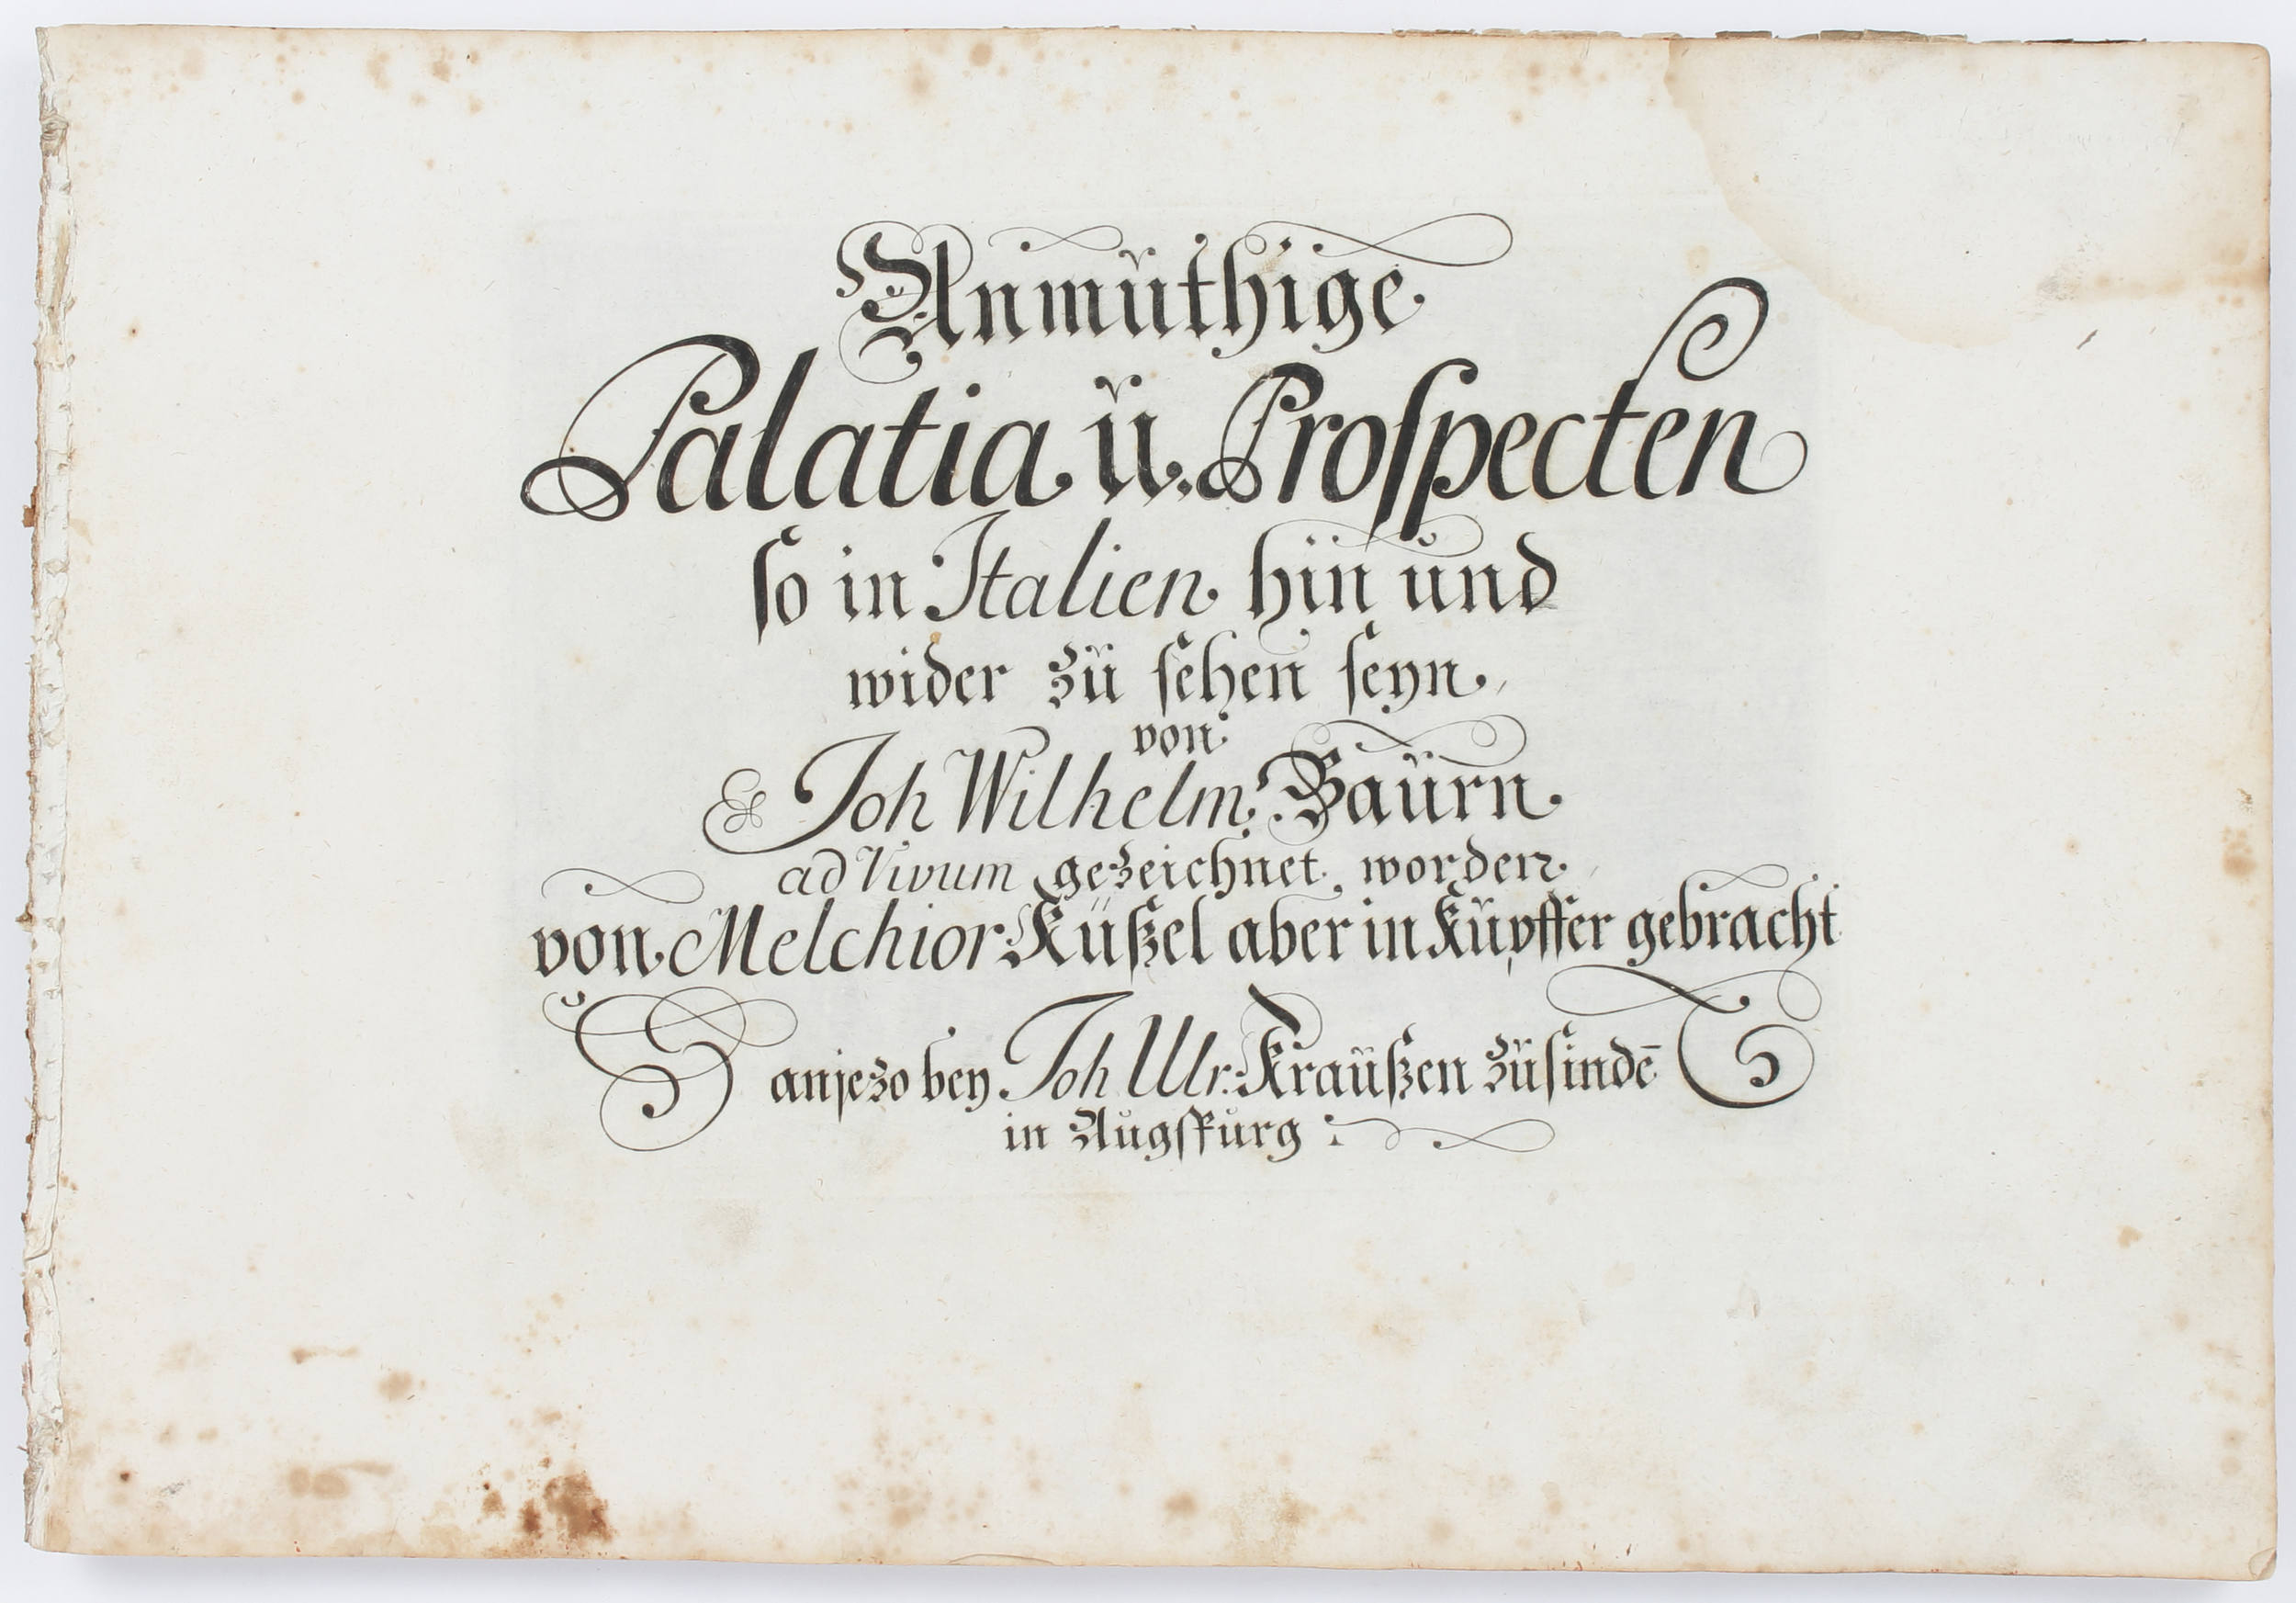 Anmuthige
Palatia u. Proſpecten
ſo in Italien hin und
wider zu ſehen ſeyn
von
Joh Wilhelm Baurn
ad Vivum gezeichnet worden
von Melchior Kußel aber in Kupffer gebracht
anjezo bey Joh Ulr. Kraußen zu findē
in Augſpurg